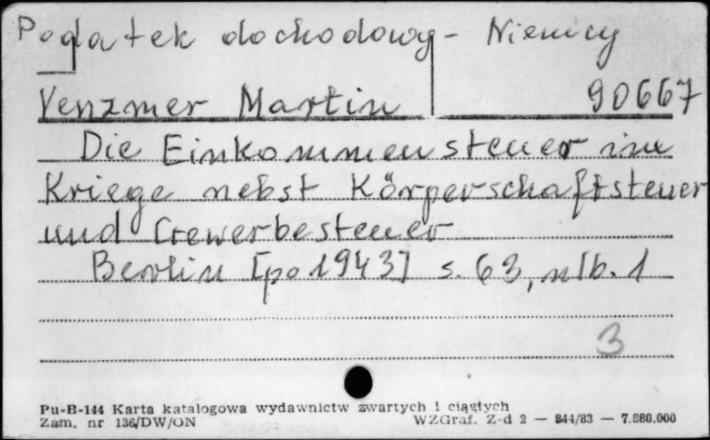 Podatek dochodowy - Niemcy
Venzmer Martin 90667
Die Einkommensteuer im
Kriege nebst Körperschaftsteuer
und Gewerbesteuer
Berlin [po 1943] s. 63, nlb. 1
3
Pu-B-144 Karta katalogowa wydawnictw zwartych i ciągłych
Zam. nr 136/DW/ON WZGraf. Z-d 2 — 844/83 — 7.880.000